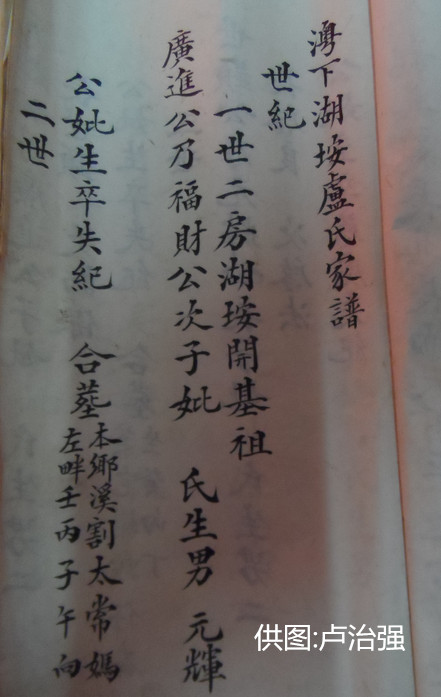 湧下湖垵盧氏家譜
世紀
一世二房湖垵開基祖
廣進公乃福財公次子妣 氏生男 元輝
公妣生卒失紀 合塟本鄉溪割太常媽
左畔壬丙子午向
二世
供图:卢治强